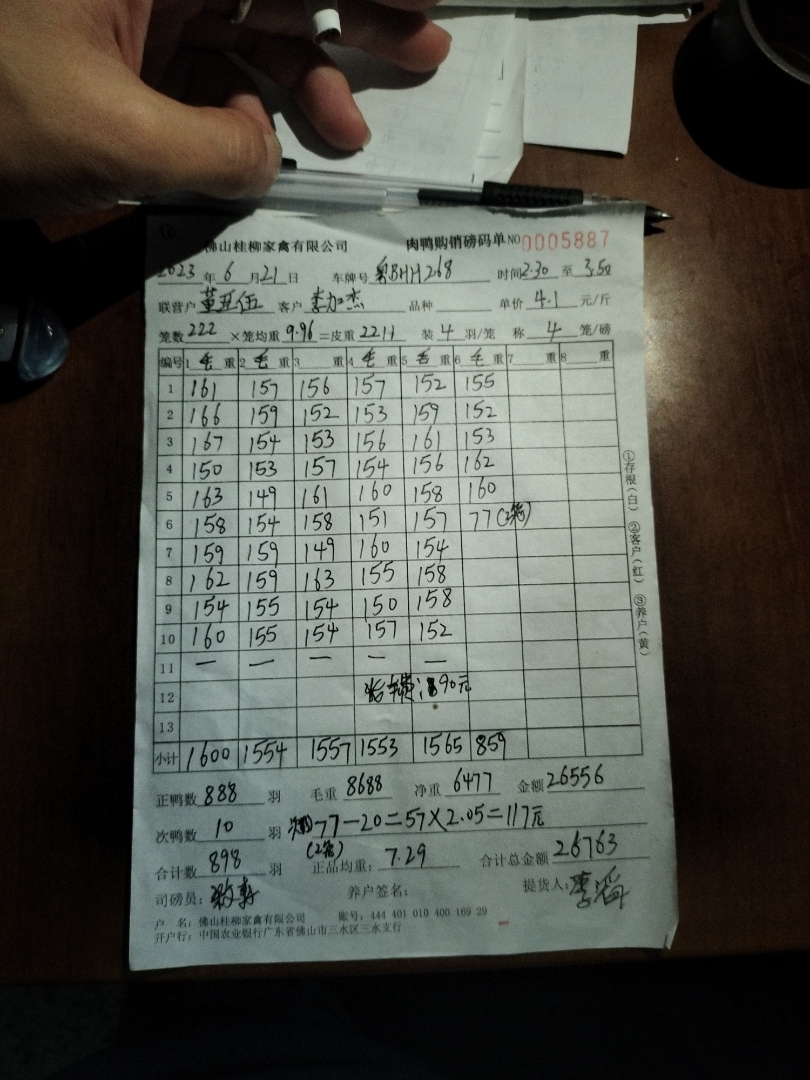 佛山桂柳家禽有限公司 肉鸭购销磅码单 NO 0005887
2023 年 6 月 21 日 车牌号 粤BHH268 时间 2.30 至 3.50
联营户 客户 李加杰 品种 单价 4.1 元/斤
笼数 222 ×笼均重 9.96 =皮重 2211 装 4 羽/笼 称 4 笼/磅
编号 1 毛 重 2 毛 重 3 重 4 毛 重 5 毛 重 6 毛 重 7 重 8 重
1 161 157 156 157 152 155
2 166 159 152 153 159 152
3 167 154 153 156 161 153
4 150 153 157 154 156 162
5 163 149 161 160 158 160
6 158 154 158 151 157 77(2笼)
7 159 159 149 160 154
8 162 159 163 155 158
9 154 155 154 150 158
10 160 155 154 157 152
11 — — — — —
12 90元
13
小计 1600 1554 1557 1553 1565 859
正鸭数 888 羽 毛重 8688 净重 6477 金额 26556
次鸭数 10 羽 77-20=57×2.05=117元
(2笼)
合计数 898 羽 正品均重: 7.29 合计总金额 26763
司磅员: 养户签名: 提货人:
户 名: 佛山桂柳家禽有限公司 账号: 444 401 010 400 169 29
开户行: 中国农业银行广东省佛山市三水区三水支行
①存根(白) ②客户(红) ③养户(黄)